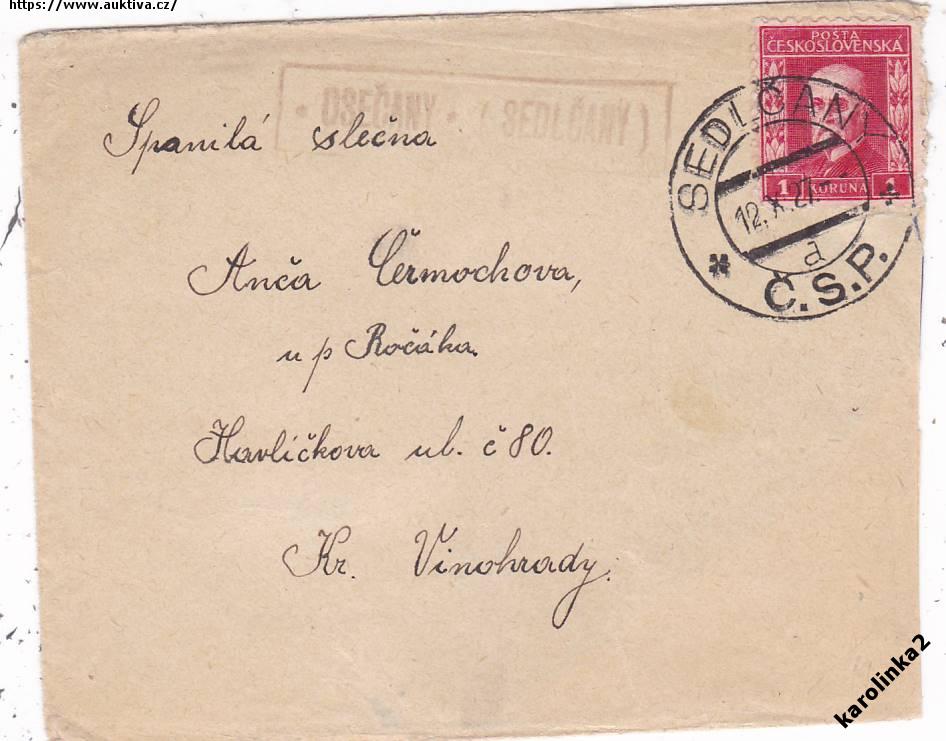 https://www.auktiva.cz/
POŠTA
ČESKOSLOVENSKÁ
1 KORUNA 1
• OSEČANY • ( SEDLČANY )
SEDLČANY
12.X.27
a
Č.S.P.
Spanilá slečna
Anča Čermochova,
u p Ročáka.
Havlíčkova ul. č 80.
Kr. Vinohrady.
karolinka2